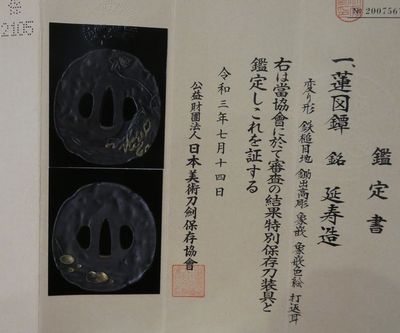 鑑定書
一、蓮図鐔 銘 延寿造
変り形 鉄槌目地 鋤出高彫 象嵌 象嵌色絵 打返耳
右は當協會に於て審査の結果特別保存刀装具と
鑑定しこれを証する
令和三年七月十四日
公益財團法人 日本美術刀劍保存協會
2105
No 200756